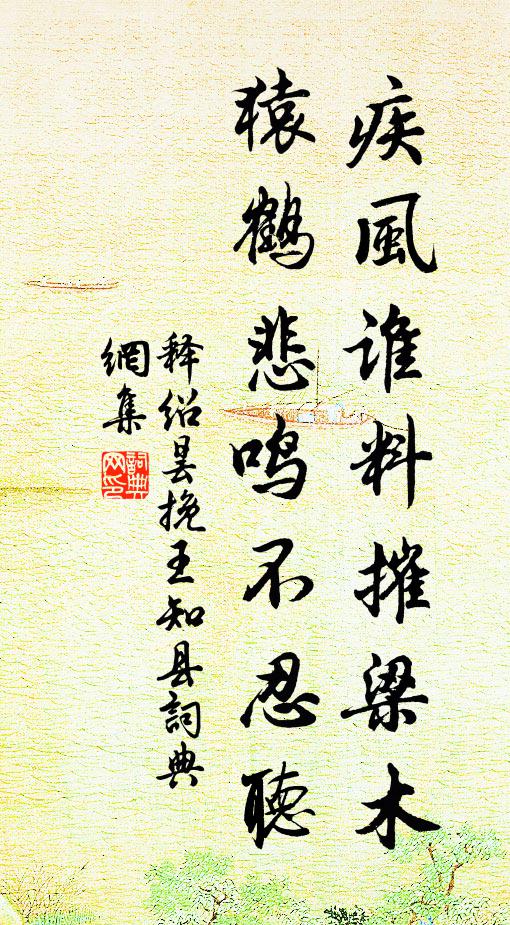 疾風誰料摧梁木
猿鶴悲鳴不忍聽
释绍昙挽王知县詞典
網集
詞典
网印